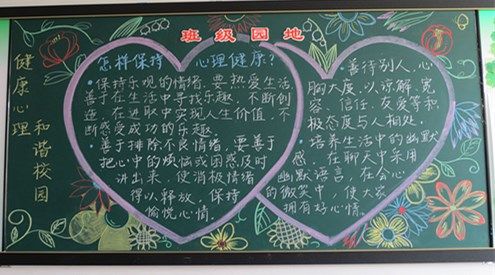 班级园地
健康心理
和谐校园
怎样保持 心理健康?
•保持乐观的情绪,要热爱生活
善于在生活中寻找乐趣,不断创
造,在进取中实现人生价值,不
断感受成功的乐趣。
•善于排除不良情绪,要善于
把心中的烦恼或困惑及时
讲出来,使消极情绪
得以释放 保持
愉悦心情。
•善待别人,心
胸大度,以谅解、宽
容、信任、友爱等积
极态度与人相处。
•培养生活中的幽默
感,在聊天中采用
幽默语言,在会心
的微笑中,使大家
拥有好心情。